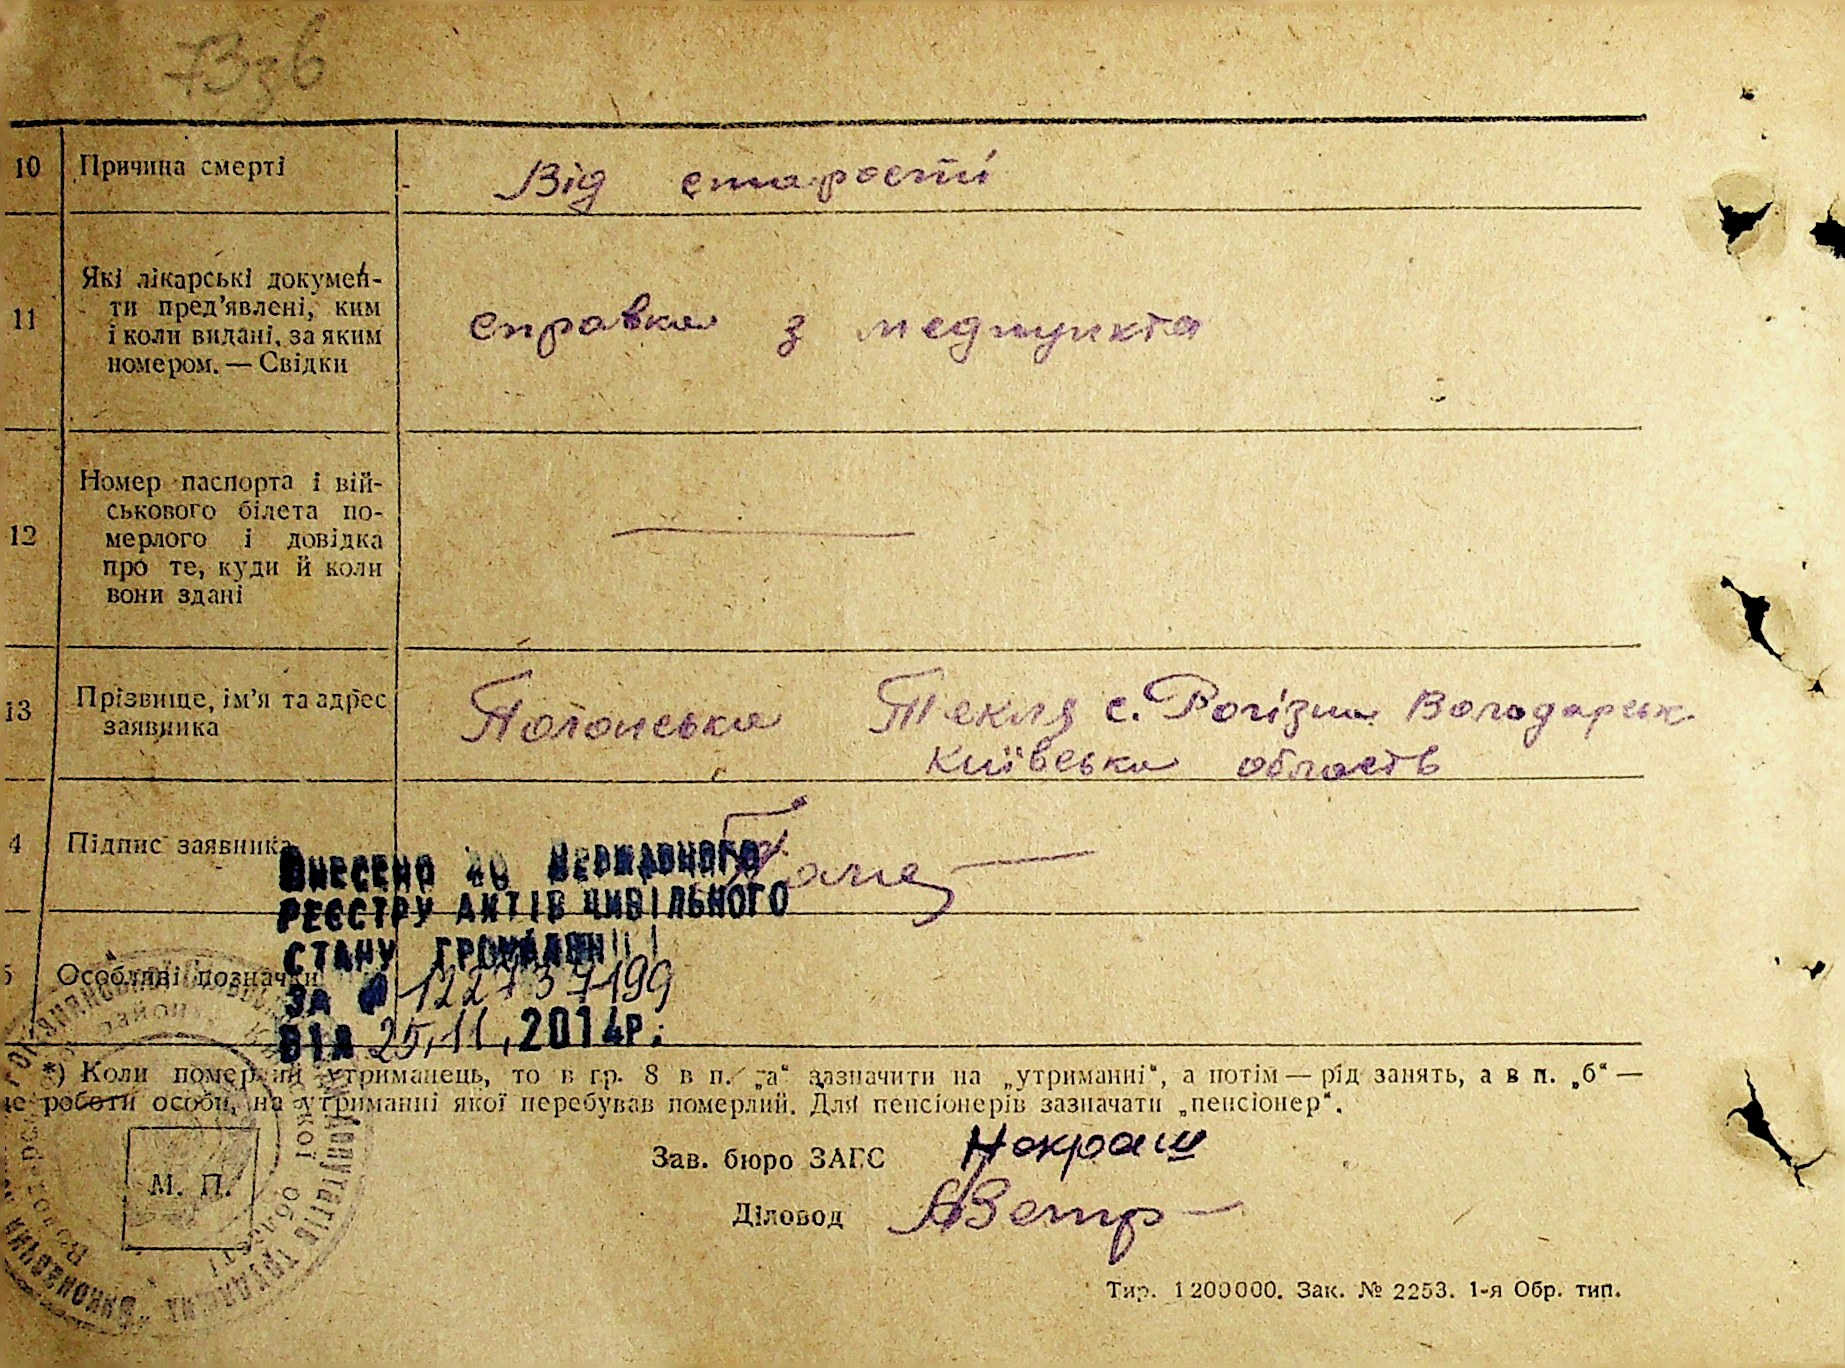 10 Причина смерті Від старости
11 Які лікарські докумен-
ти пред'явлені, ким
і коли видані, за яким
номером. — Свідки
справка з медпункта
12 Номер паспорта і вій-
ськового білета по-
мерлого і довідка
про те, куди й коли
вони здані
13 Прізвище, ім'я та адрес
заявника
Текля с. Рогізна Володарськ.
Київська область
4 Підпис заявника
ВНЕСЕНО ДО ДЕРЖАВНОГО
РЕЄСТРУ АКТІВ ЦИВІЛЬНОГО
СТАНУ ГРОМАДЯН
5 Особливі позначки
ЗА №
ВІД 25.11.2014р.
*) Коли померлий утриманець, то в гр. 8 в п. „а“ зазначити на „утриманні“, а потім — рід занять, а в п. „б“ —
роботи особи, на утриманні якої перебував померлий. Для пенсіонерів зазначати „пенсіонер“.
Зав. бюро ЗАГС
М. П.
Діловод
Тир. 1200000. Зак. № 2253. 1-я Обр. тип.